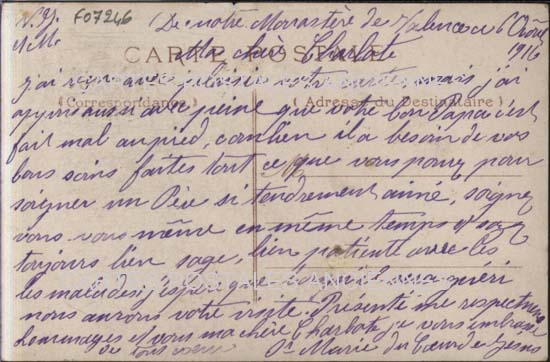 V. J. F07246 De notre Monastère de Valence 6 Août
et M. 1916
CARTE POSTALE
Ma chère Charlote
j'ai reçu avec plaisir votre carte mais j'ai
appris aussi avec peine que votre bon Papa s'est
(Correspondance) (Adresse du Destinataire)
fait mal au pied, combien il a besoin de vos
bons soins faites tout ce que vous pourez pour
soigner un Père si tendrement aimé, soignez
vous vous même en même temps et soyez
toujours bien sage, bien patiente avec les
les malades, j'espère que guéri
nous aurons votre visite. Présenté me respectueux
hommages et vous ma chère Charlote je vous embrasse
de tout cœur Sr Marie du Cœur de Jésus